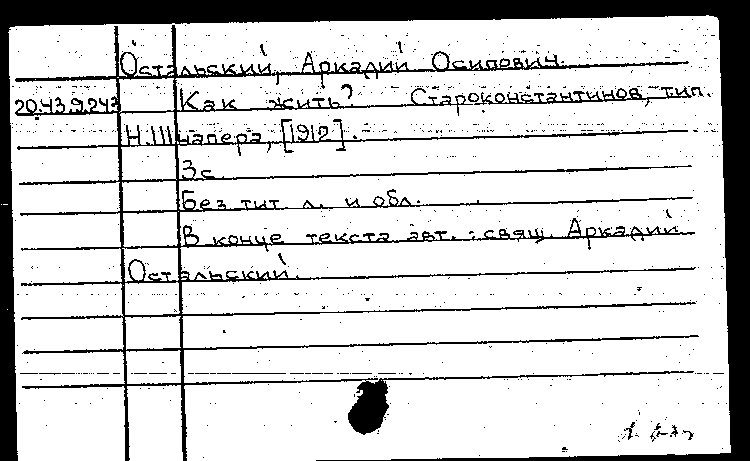 Остальский, Аркадий Осипович.
20.43.9.243 Как жить? Староконстантинов, тип.
Н.Шнапера, [1912].
3с
Без тит. л. и обл.
В конце текста авт.: свящ. Аркадий
Остальский.